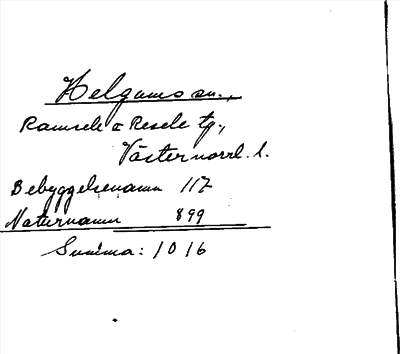 Helgums sn.,
Ramsele o Resele tg.,
Västernorrl. l.
Bebyggelsenamn 117
Naturnamn 899
Summa: 1016